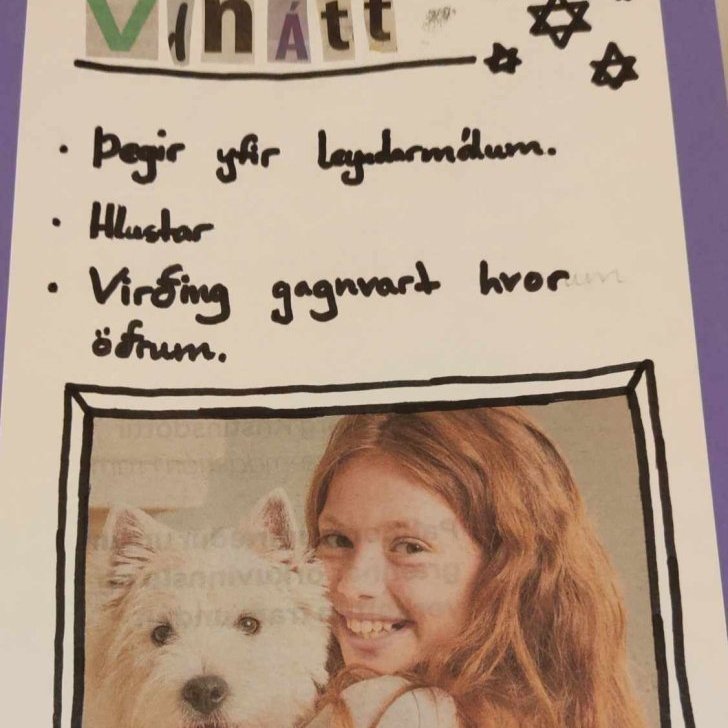 VinÁtt
• Þegir yfir leyndarmálum.
• Hlustar
• Virðing gagnvart hvorum
öðrum.